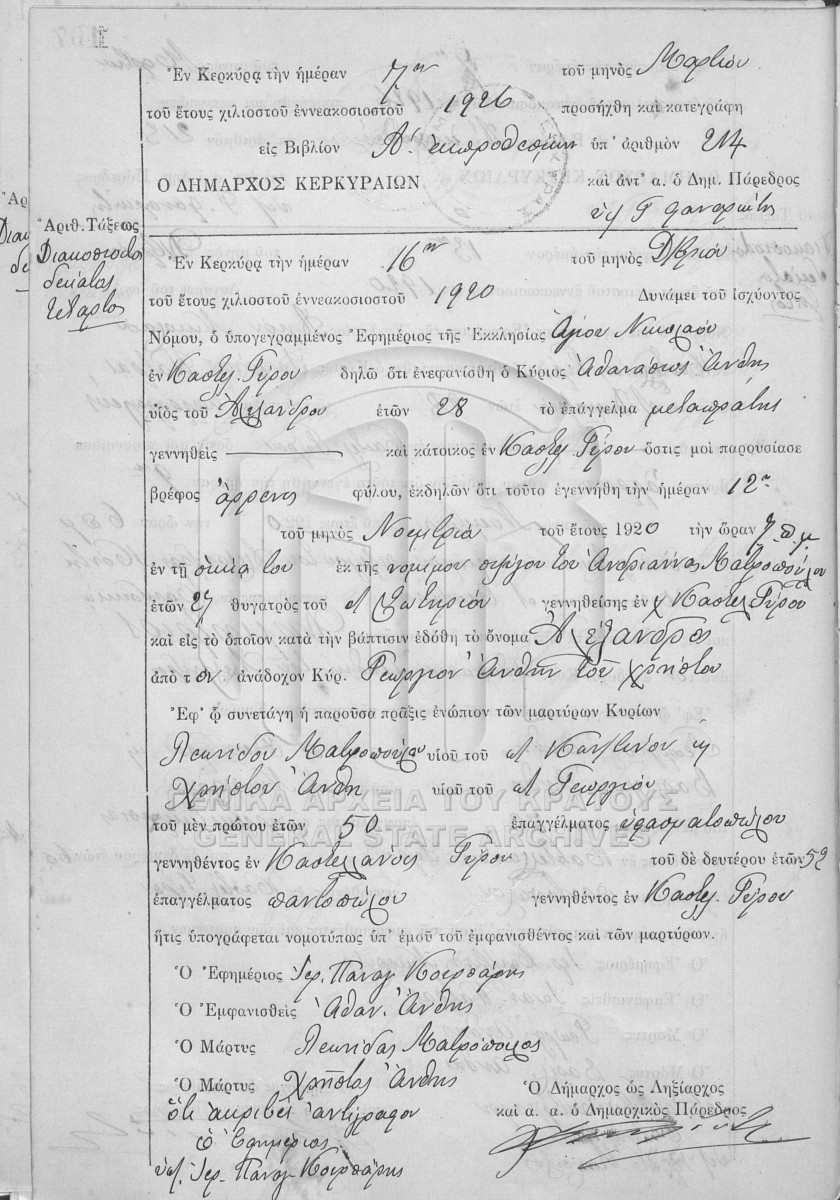 Ἐν Κερκύρᾳ τὴν ἡμέραν 7ην τοῦ μηνὸς Μαρτίου
τοῦ ἔτους χιλιοστοῦ ἐννεακοσιοστοῦ 1926 προσήχθη καὶ κατεγράφη
εἰς Βιβλίον Α. ἐκπροθέσμων ὑπ' ἀριθμὸν 214
Ο ΔΗΜΑΡΧΟΣ ΚΕΡΚΥΡΑΙΩΝ καὶ ἀντ' α. ὁ Δημ. Πάρεδρος
Ἀριθ. Τάξεως
Διακοσιοστὸς
δέκατος
τέταρτος
Ἐν Κερκύρᾳ τὴν ἡμέραν 16ην τοῦ μηνὸς Δ/βρίου
τοῦ ἔτους χιλιοστοῦ ἐννεακοσιοστοῦ 1920 Δυνάμει τοῦ ἰσχύοντος
Νόμου, ὁ ὑπογεγραμμένος Ἐφημέριος τῆς Ἐκκλησίας Ἁγίου Νικολάου
ἐν Καστελ. Γύρου δηλῶ ὅτι ἐνεφανίσθη ὁ Κύριος Ἀθανάσιος Ἄνθης
υἱὸς τοῦ Ἀλεξάνδρου ἐτῶν 28 τὸ ἐπάγγελμα μεταπράτης
γεννηθεὶς καὶ κάτοικος ἐν Καστελ. Γύρου ὅστις μοὶ παρουσίασε
βρέφος ἄρρενος φύλου, ἐκδηλῶν ὅτι τοῦτο ἐγεννήθη τὴν ἡμέραν 12η
τοῦ μηνὸς Νοεμβρίου τοῦ ἔτους 1920 τὴν ὥραν 7 π.μ
ἐν τῇ οἰκίᾳ του ἐκ τῆς νομίμου συζύγου του Ἀνδριάννας Ματροπούλου
ἐτῶν 27 θυγατρὸς τοῦ Σωτηρίου γεννηθείσης ἐν Καστελ. Γύρου
καὶ εἰς τὸ ὁποῖον κατὰ τὴν βάπτισιν ἐδόθη τὸ ὄνομα Ἀλέξανδρος
ἀπὸ τὸν ἀνάδοχον Κύρ. Γεώργιον Ἄνθην τοῦ Χρήστου
Ἐφ' ᾧ συνετάγη ἡ παροῦσα πρᾶξις ἐνώπιον τῶν μαρτύρων Κυρίων
Λεωνίδου Ματροπούλου υἱοῦ τοῦ
Χρήστου Ἄνθη υἱοῦ τοῦ Γεωργίου
ΓΕΝΙΚΑ ΑΡΧΕΙΑ ΤΟΥ ΚΡΑΤΟΥΣ
τοῦ μὲν πρώτου ἐτῶν 50 ἐπαγγέλματος ὑφασματοπώλου
GENERAL STATE ARCHIVES
γεννηθέντος ἐν Καστελλάνους Γύρου τοῦ δὲ δευτέρου ἐτῶν 52
ἐπαγγέλματος παντοπώλου γεννηθέντος ἐν Καστελ. Γύρου
ἥτις ὑπογράφεται νομοτύπως ὑπ' ἐμοῦ τοῦ ἐμφανισθέντος καὶ τῶν μαρτύρων.
Ὁ Ἐφημέριος Ἱερ. Παναγ.
Ὁ Ἐμφανισθεὶς Ἀθαν. Ἄνθης
Ὁ Μάρτυς Λεωνίδας Ματρόπουλος
Ὁ Μάρτυς Χρῆστος Ἄνθης
Ὁ Δήμαρχος ὡς Ληξίαρχος
ὅτι ἀκριβὲς ἀντίγραφον
καὶ α. α. ὁ Δημαρχικὸς Πάρεδρος
ὁ Ἐφημέριος
Ἱερ. Παναγ.